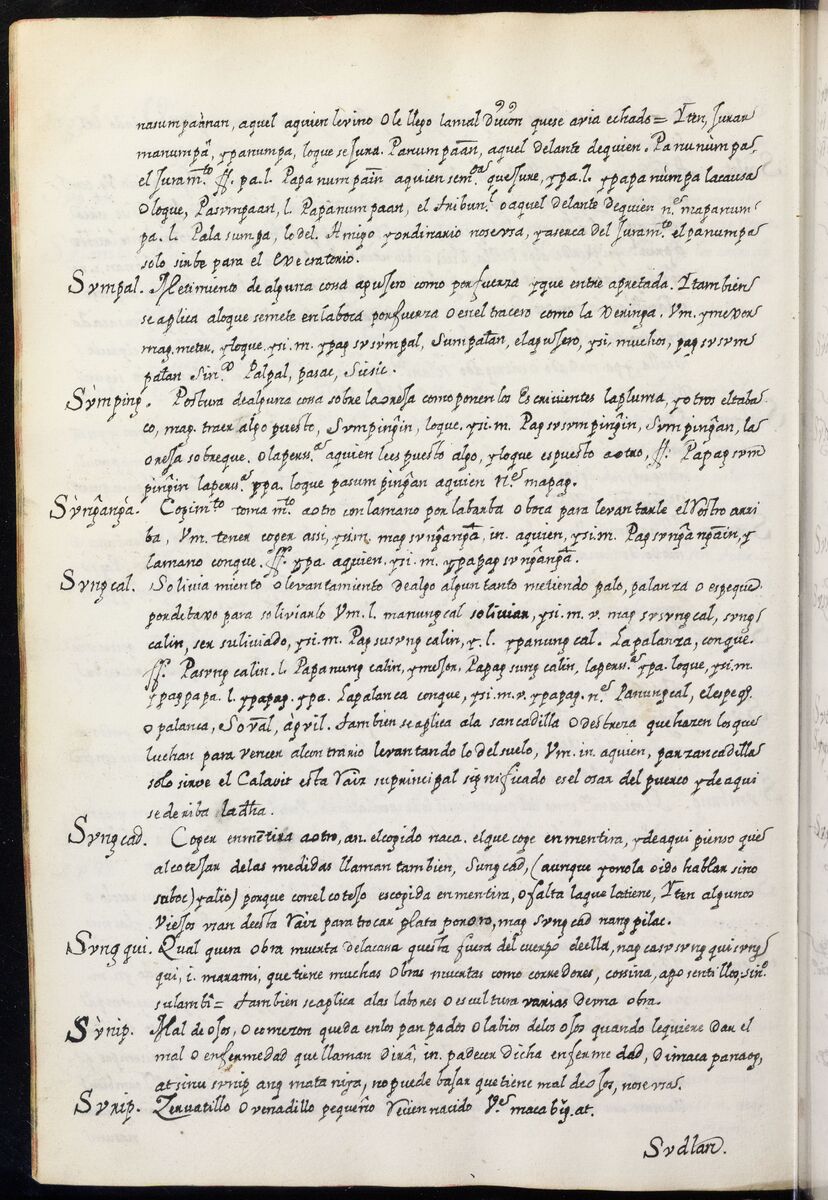 nasumpaànan, aquel aquien levino O le llego lamal diçion quese avia echado = Yten, Jurar
manumpâ, ypanumpa, loque se Jura. Panumpaãn, aquel delante dequien. Panunùmpa,
el Juram.to ff. pa. l. Papanumpaĩn aquien quejure, ypa. l. ypapanùmpa lacausa
Oloque, Pasvmpaan, l. Papanumpaan, el tribun.l o aquel delante dequien n.e mapanum-
pa. l. Pala sumpa, lo del Amigo yordinario noseusa, yaserca del Juram.to el panumpa
solo sirbe para el Execratorio.
Svmpal. Metimiento de alguna cosa agujero como porfuerza yque entre apretada. Y tambien
se aplica aloque semete enlaboca porfuerza O enel tracero como la Xeringa. Vm. ymexor
mag. meter, yloque. ysi. m. ypag svsvmpal, sumpatan, elagujero, ysi. muchos, pag svsvm
patan Sin.o Palpal, pasac, Sucsic.
Sùmping. Postura dealguna cosa sobre laoreja como ponen los Escrivientes lapluma, yotros eltaba
co, mag. traer algo puesto, Svmpingin, loque, ysi. m. Pag svsvmpingin, Svmpingan, la
oreja sobreque. O lapers.a aquien lees puesto algo, yloque es puesto aotro, ff. Papagsvm
pingin lapers.a ypa. loque pasumpingan aquien N.e mapag.
Sùngàngà. Cogim.to toma m.to aotro con lamano por labarba O boca para levantarle el Rostro arri
ba, Vm. tener coger assi, ysi. m. mag svngãngã, in. aquien, ysi. m. Pag svngãngãin, y
lamano conque. ff. ypa. aquien. ysi. m. ypapag svngãngã.
Svngcal. Solivia miento O levantamiento dealgo algun tanto metiendo palo, palanza o espeque
pordetaxo para soliviarlo Vm. l. manungcal soliviar, ysi. m. v. mag svsvngcal, svng
calin, ser suliviado, ysi. m. Pag susvngcalin, y. l. ypanungcal. La palanza, conque.
ff. Pasvngcalin. l. Papanungcalin, ymejor, Papag sungcalin, lapers.a ypa. loque, ysi. m.
ypagpapa. l. ypapag. ypa. La palanca conque, ysi. m. v. ypapag. n.e Panungcal, elespeq.
O palanca, Sovãl, àpvil. tambien se aplica ala sancadilla O destreza que hazen los que
luchan para vencer al contrario levantando lo del suelo, Vm. in. aquien, parzancadilla
solo sirve el Calavit esta raiz su principal significado es el osar del puerco yde aqui
se deriba la dha.
Svngcad. Coger en mentira aotro, an. el cogido naca. el que coge en mentira, yde aqui pienso que
al cotejar delas medidas llaman tambien, Sungcad, (aunque yo nola oido hablar sino
suboc) yalio) porque con el cotejo escogida en mentira, O falta laque latiene, Yten algunos
Viejos usan desta raiz para trocar plata por oro, mag svngcad nang pilac.
Svngqui. Qual quera Obra muerta delacasa questa fuera del cuerpo deella, nag casusvngquisvng
qui, i. marami, que tiene muchas Obras muertas como corredores, cossina, aposentillos, sin.o
sulambî = tambien se aplica alas labores o escultura varias deuna obra.
Sùnip. Mal de ojos, o comezon queda enlos panpados O labios delos ojos quando lequiere dar el
mal O enfermedad que llaman dirã, in. padecer dicha enfermedad, di maca panaog,
at sinusunip ang mata niya, no puede bajar que tiene mal de ojos, no se usa.
Svnip. Zervatillo O venadillo pequeño Recien nacido V.e macabig. at.
Svdlan.